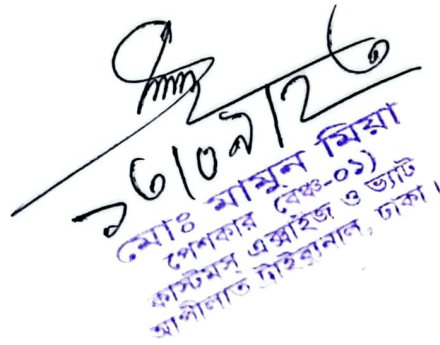 ১৩/০৯/২৩
মোঃ মামুন মিয়া
পেশকার (বেঞ্চ-০১)
কাস্টমস্ এক্সাইজ ও ভ্যাট
আপীলাত ট্রাইব্যুনাল, ঢাকা।